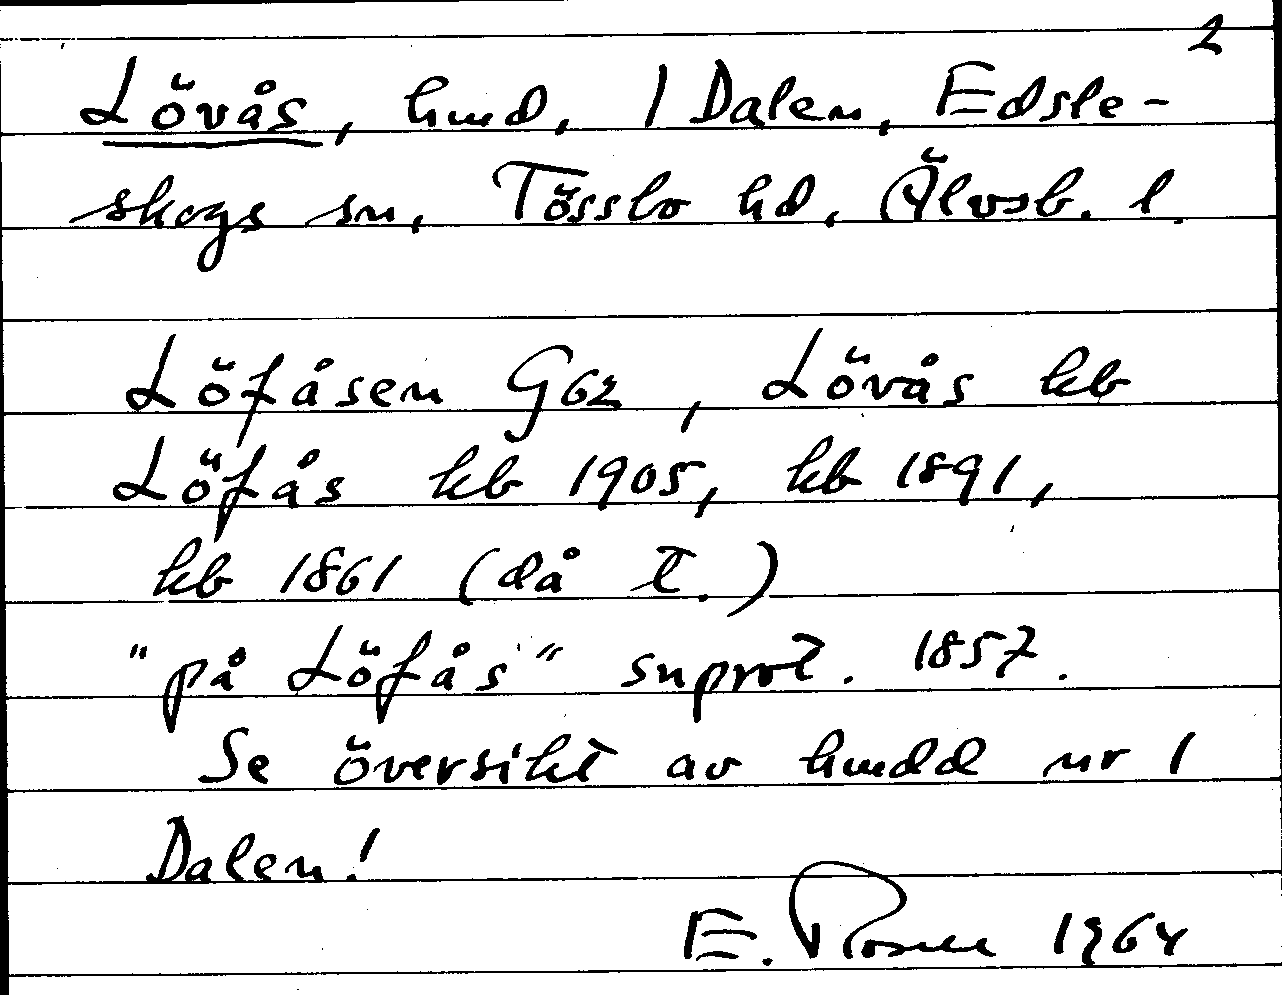 2
Lövås, hmd, 1 Dalen, Edsle-
skogs sn, Tössbo hd, Älvsb. l.
Löfåsen G62, Lövås kb
Löfås kb 1905, hb 1891,
hb 1861 (då t.)
"på Löfås" snprot. 1857.
Se översikt av hmdd nr 1
Dalen!
E. 1964